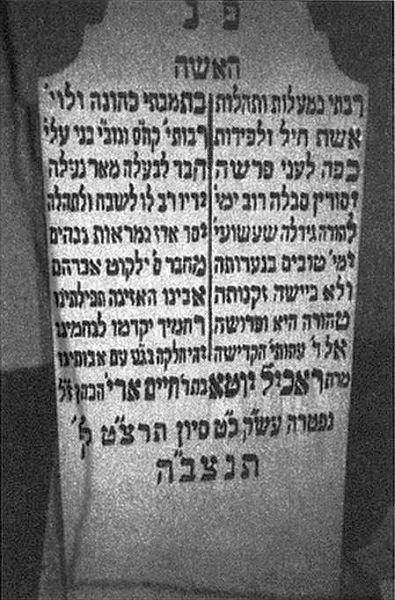 פ נ
האשה
רבתי במעלות ותהלות בת מבתי כהונה ולוי'
אשת חיל ולפידות רבותי' קה"ס וגוב"י בני עלי'
כפה לעני פרשה הבד לבעלה מאד נעלה
יסורין סבלה רוב ימי' ידיו רב לו לשבח ולתהלה
לתורה גידלה שעשועי' יסד אדז במראות גבהים
ימי' טובים בנערותה מחבר ס' ילקוט אברהם
ולא ביישה זקנותה אבינו האזינה תפילתינו
טהורה היא ופרושה רחמיך יקדמו לנחמינו
אל ד' עתותי' הקדישה יהי חלקה בג"ע עם אבותינו
מרת ראכיל יוטא בת ר' חיים ארי' הכהן ז"ל
נפטרה עש"ק כ"ט סיון תרצ"ט ל'
תנצב"ה